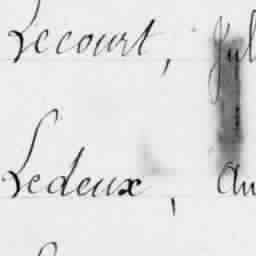 Lecourt, Jul
Ledeux, Au